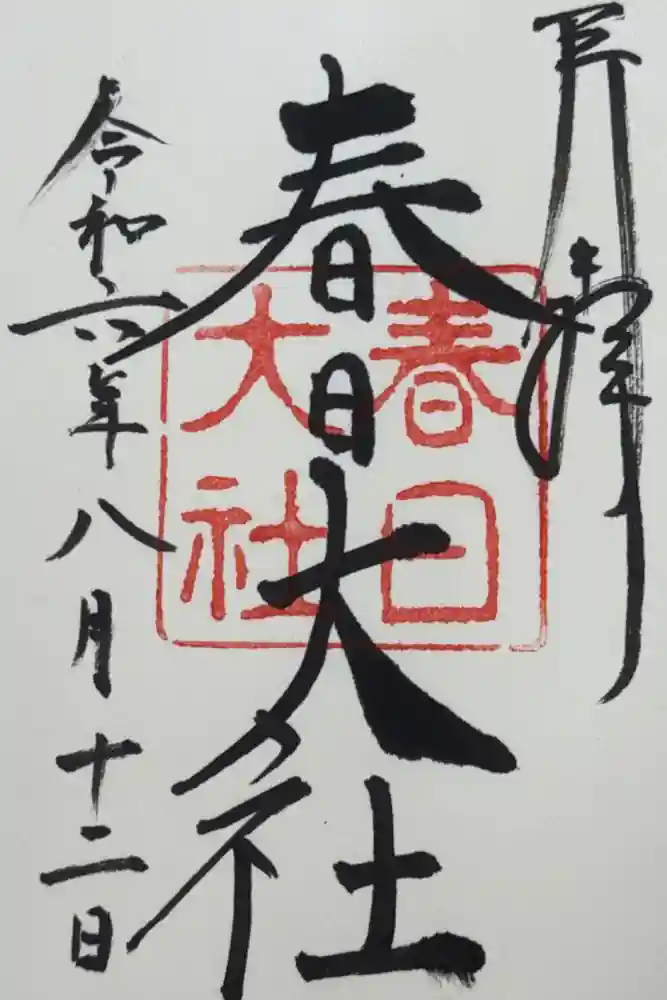 奉拝
春日大社
春日
大社
令和六年八月十二日